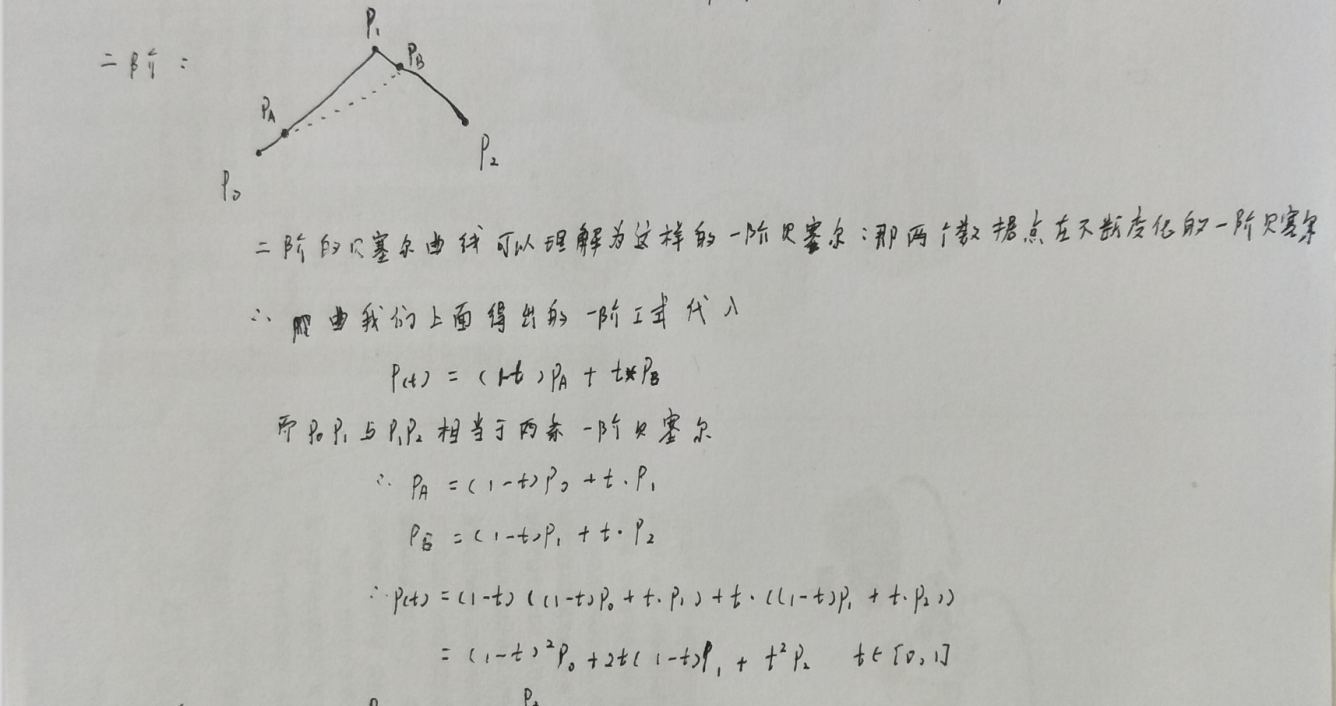 二阶:
P₁
P_B
P_A
P₂
P₀
二阶的贝塞尔曲线可以理解为这样的一阶贝塞尔:那两个数据点在不断变化的一阶贝塞尔
∴ 由我们上面得出的一阶公式代入
P(t) = (1-t)P_A + t*P_B
而P₀P₁与P₁P₂相当于两条一阶贝塞尔
∴ P_A = (1-t)P₀ + t·P₁
P_B = (1-t)P₁ + t·P₂
∴ P(t) = (1-t)((1-t)P₀ + t·P₁) + t·((1-t)P₁ + t·P₂)
= (1-t)²P₀ + 2t(1-t)P₁ + t²P₂ t∈[0,1]